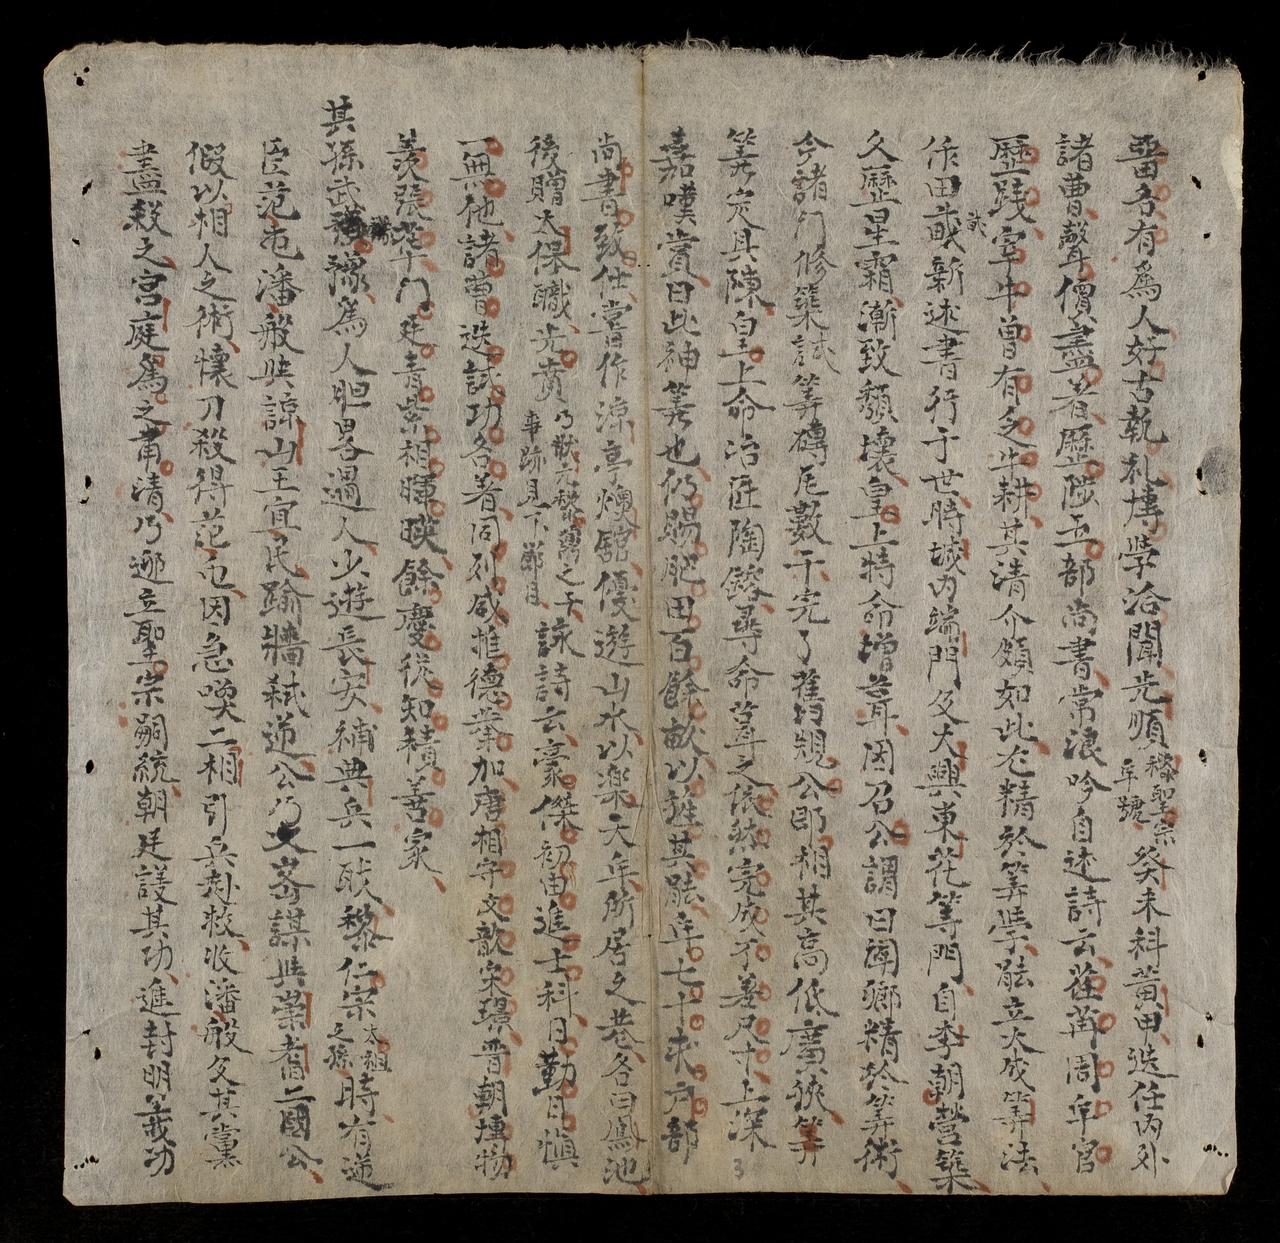 番名有為人好古執礼博学洽聞光順黎聖宗年號癸未科黃甲迭任内外
諸曹聲價盡著歷陟五部尚書常浪吟自述詩云荏苒周年官
歷践宰牛曽有乏牛耕其清介頗如此尤精於筭学能立大成筭法
作田畝新述書行于世時城内端門及大興東花等門自李朝營築
久歷星霜漸致頽壊皇上特命增葺因召公謂曰聞卿精於筭術
今諸門修築試筭磚瓦數于完了舊規公即相其高低廣狹筭
筭定具陳皇上命冶匠陶鎔尋命葺之依然完成不差尺寸上深
嘉嘆賞曰此神筭也仍賜肥田百餘畝以旌其能年七十求戶部
尚書致仕嘗作涼亭燠舘優遊山水以楽天年所居之巷名曰鳳池
後贈太保職光賁乃狀元黎鼒之子事跡見下節目詠詩云豪傑初由進士科月勤日慎
一無他諸曹迭試功名著同列咸推德業加唐相字文歆宋璟晋朝壇物
羡張華門廷青紫相暉暎餘慶從知積善家
其孫武 豫為人胆畧過人少遊長安補典兵一職黎仁宗太祖之孫時有逆
臣范屯潘般與諒山王宜民踰牆弑逆公乃 密謀與崇者二國公
假以相人之術懷刀殺得范屯因急喚二相引兵赴救收潘般及其黨
盡殺之宮庭為之肅清乃迎立聖宗嗣統朝廷議其功進封明 功